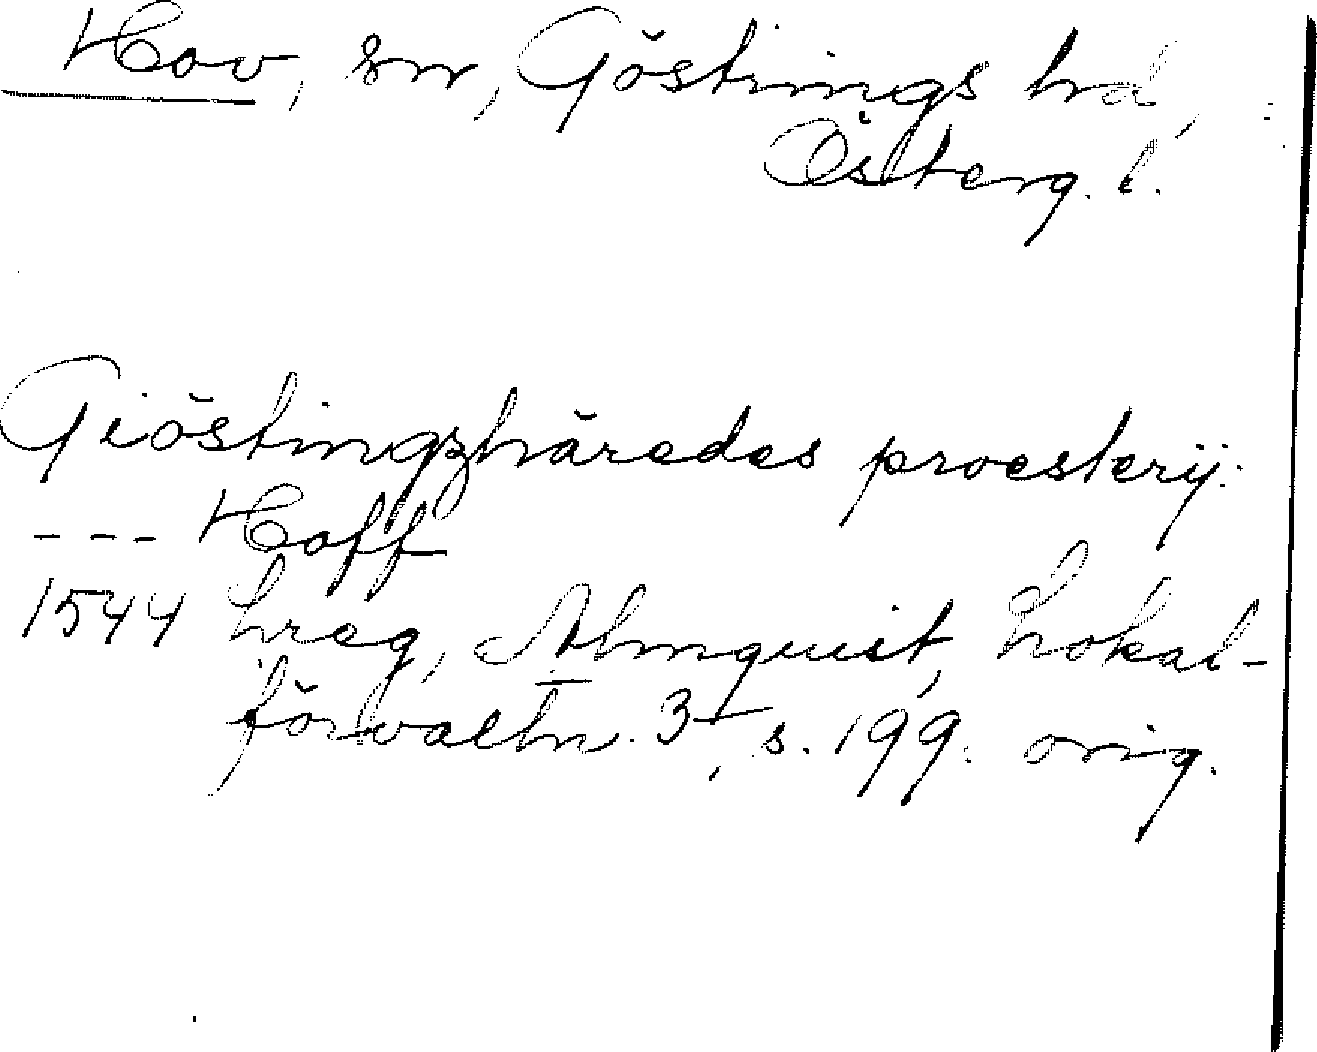 Hov, sn, Göstrings hd,
Österg. l.
Giöstingzhäredes proesterij:
--- Hoff
1544 hreg, Almquist, Lokal-
förvaltn. 3, s. 199. orig.